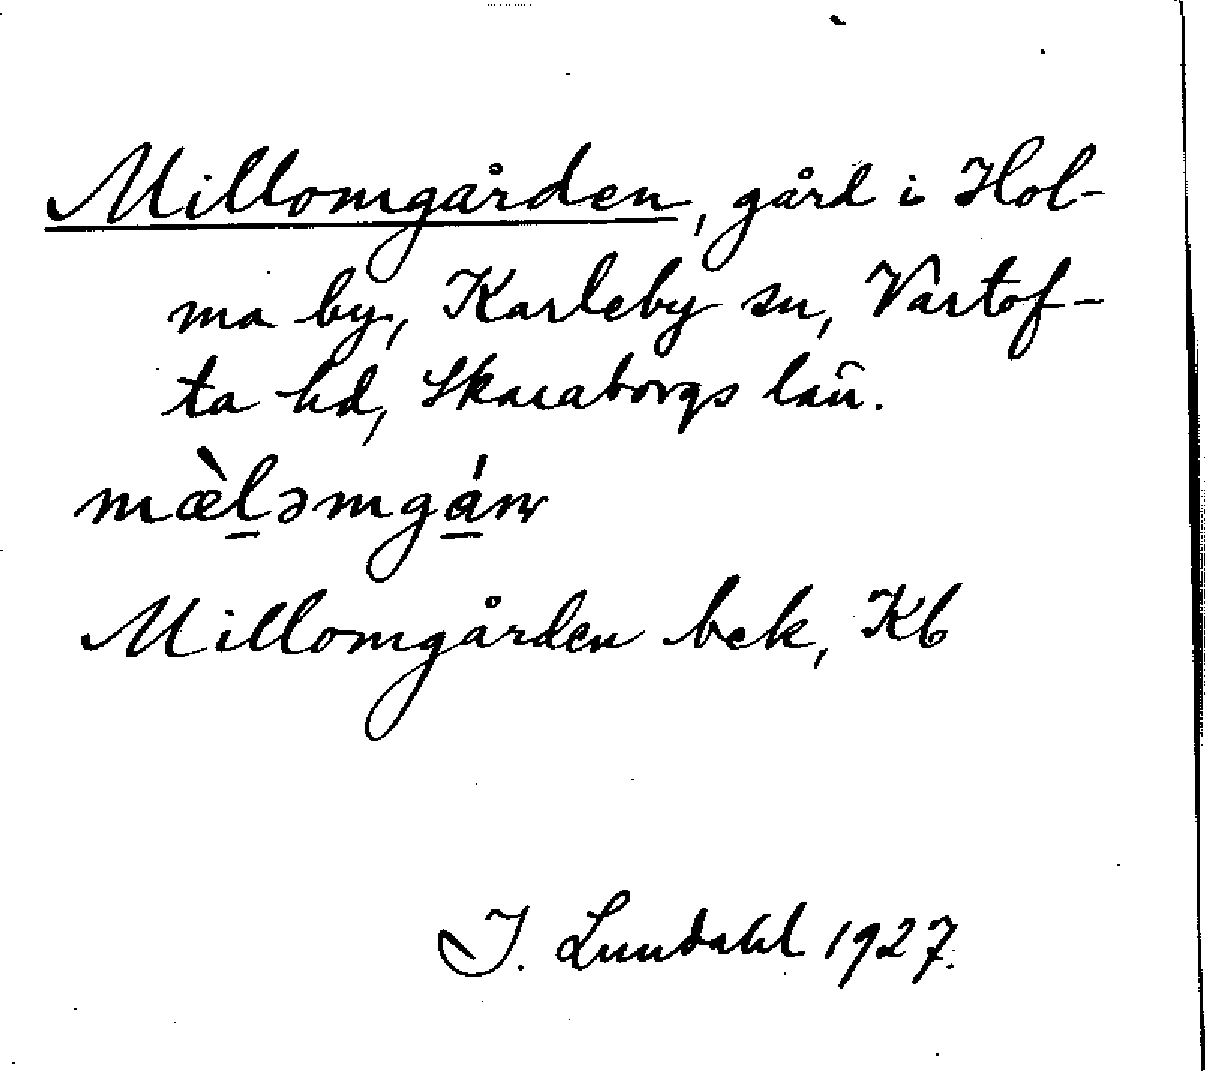 Millomgården, gård i Hol-
ma by, Karleby sn, Vartof-
ta hd, Skaraborgs län.
mæ̀l̠əmgá̠ɳ
Millomgården bek, Kb
I. Lundahl 1927.